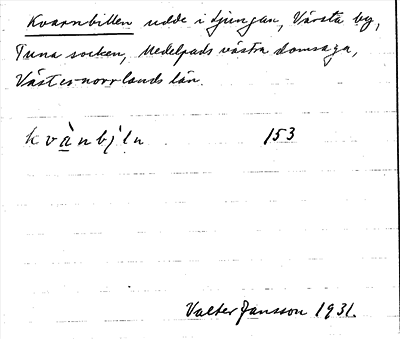 Kvarnbillen udde i Ljungan, Värsta by,
Tuna socken, Medelpads västra domsaga,
Västernorrlands län.
kvànbįln 153
Valter Jansson 1931.